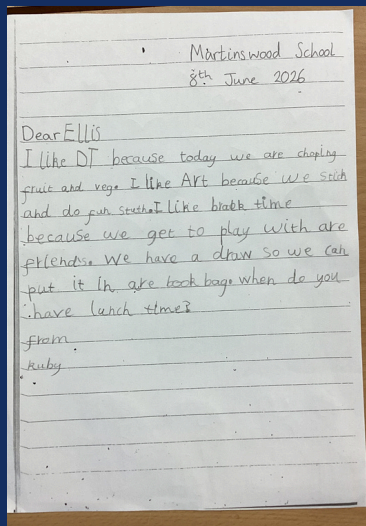 Martinswood School
8th June 2026
Dear Ellis
I like DT because today we are choping
fruit and veg. I like Art because we stich
and do fun stuth. I like brak time
because we get to play with are
friends. We have a draw so we can
put it in are book bag. when do you
have lunch time?
from
Ruby